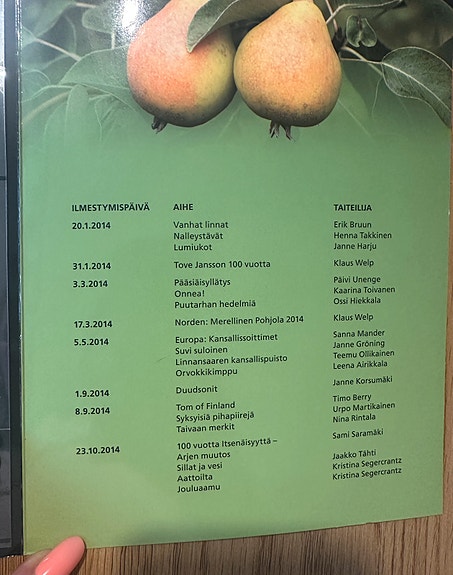 ILMESTYMISPÄIVÄ AIHE TAITEILIJA
20.1.2014 Vanhat linnat Erik Bruun
Nalleystävät Henna Takkinen
Lumiukot Janne Harju
31.1.2014 Tove Jansson 100 vuotta Klaus Welp
3.3.2014 Pääsiäisyllätys Päivi Unenge
Onnea! Kaarina Toivanen
Puutarhan hedelmiä Ossi Hiekkala
17.3.2014 Norden: Merellinen Pohjola 2014 Klaus Welp
5.5.2014 Europa: Kansallissoittimet Sanna Mander
Suvi suloinen Janne Gröning
Linnansaaren kansallispuisto Teemu Ollikainen
Orvokkikimppu Leena Airikkala
1.9.2014 Duudsonit Janne Korsumäki
8.9.2014 Tom of Finland Timo Berry
Syksyisiä pihapiirejä Urpo Martikainen
Taivaan merkit Nina Rintala
23.10.2014 100 vuotta Itsenäisyyttä – Sami Saramäki
Arjen muutos
Sillat ja vesi Jaakko Tähti
Aattoilta Kristina Segercrantz
Jouluaamu Kristina Segercrantz